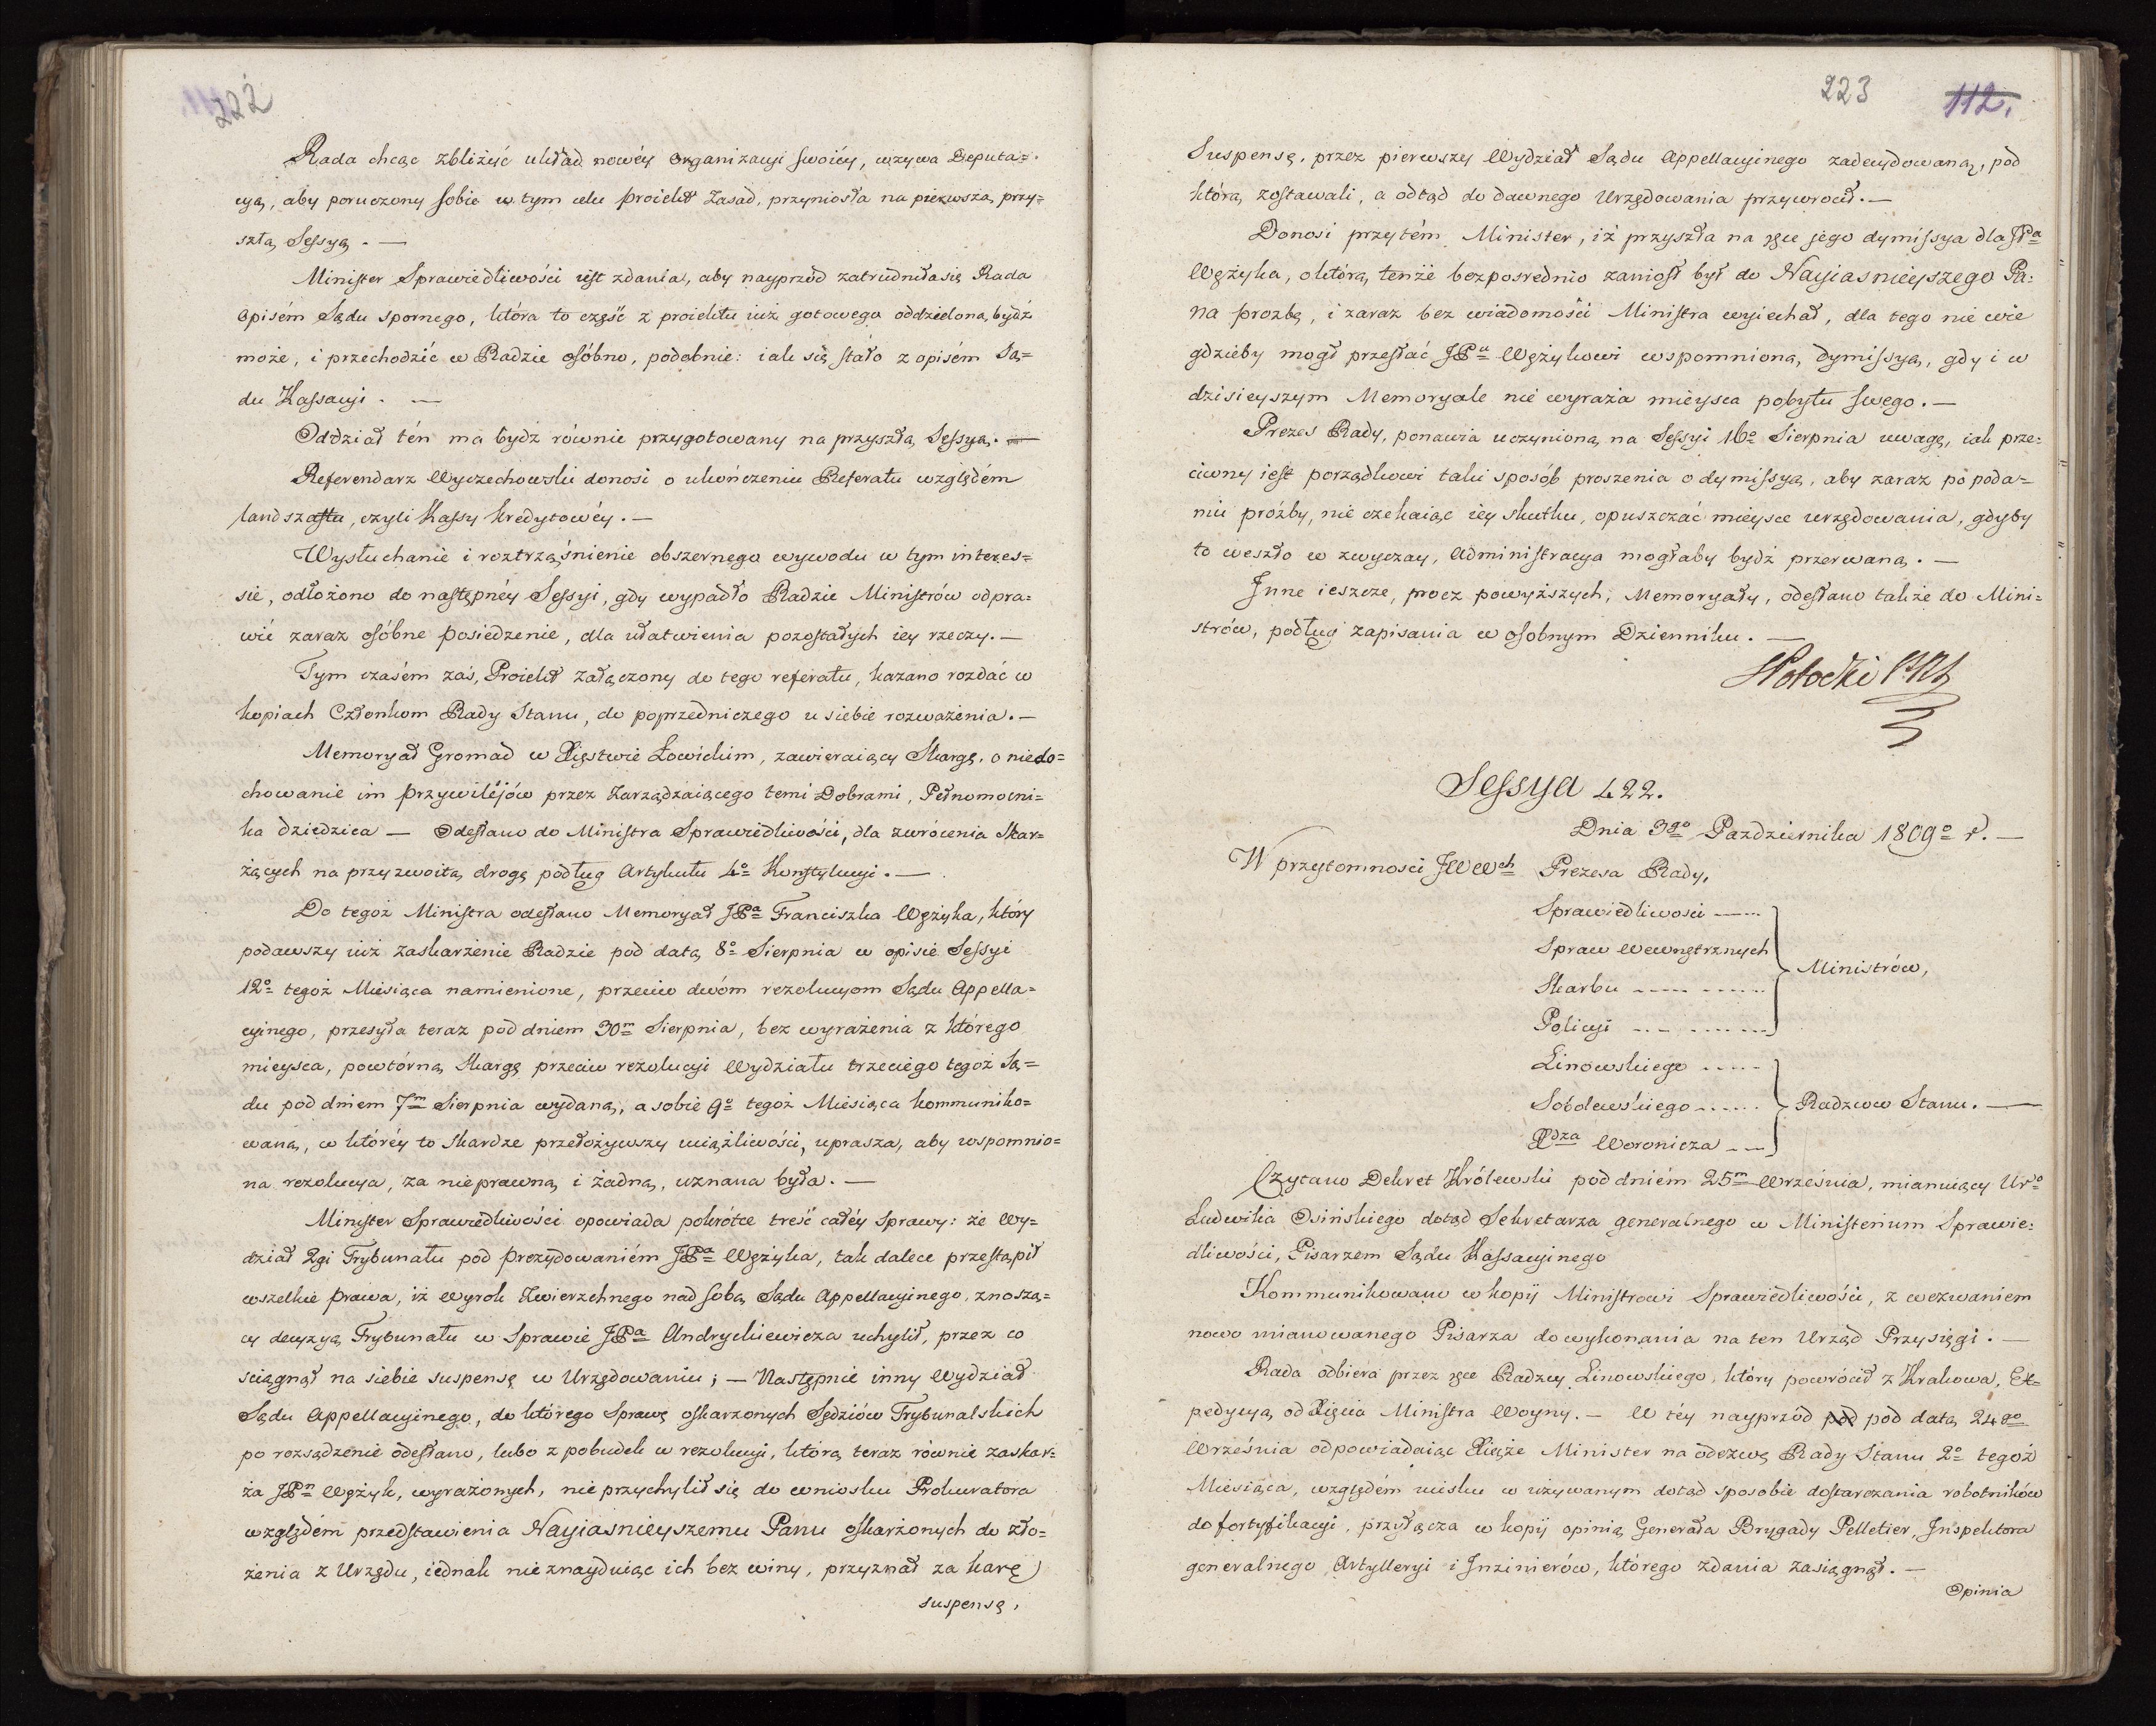 222
Rada chcąc zbliżyć układ nowéy Organizacyi swoiéy, wzywa Deputa=
cyą, aby poruczony sobie w tym celu Proiekt Zasad, przyniosła na pierwszą przy=
szłą Sessyą. —
Minister Sprawiedliwości iest zdania, aby nayprzód zatrudniła się Rada
Opisém Sądu spornego, która to część z proiektu iuż gotowego oddzielona bydź
może, i przechodzić w Radzie osóbno, podobnie: iak się stało z opisém Są=
du Kassacyi. —
Oddział tén ma bydz równie przygotowany na przyszłą Sessyą. —
Referendarz Wyczechowski donosi o ukończeniu Referatu względém
landszaftu, czyli Kassy kredytowéy. —
Wysłuchanie i roztrząśnienie obszernego wywodu w tym interes=
sie, odłożono do następnéy Sessyi, gdy wypadło Radzie Ministrów odpra=
wić zaraz osóbne posiedzenie, dla ułatwienia pozostałych iey rzeczy. —
Tym czasém zaś, Proiekt załączony do tego referatu, kazano rozdać w
kopiach Członkom Rady Stanu, do poprzedniczego u siebie rozważenia. —
Memoryał Gromad w Xięstwie Łowickim, zawieraiący Skargę, o niedo=
chowanie im Przywiléjów przez Zarządzaiącego temi Dobrami, Pełnomocni=
ka dziedzica — Odesłano do Ministra Sprawiedliwości, dla zwrócenia Skar=
żących na przyzwoitą drogę podług Artykułu 4o Konstytucyi. —
Do tegoż Ministra odesłano Memoryał JPa Franciszka Wężyka, który
podawszy iuż zaskarżenie Radzie pod datą 8o Sierpnia w opisie Sessyi
12o tegoż Miesiąca namienione, przeciw dwóm rezolucyom Sądu Appella=
cyinego, przesyła teraz pod dniem 30m Sierpnia, bez wyrażenia z którego
mieysca, powtórną Skargę przeciw rezolucyi Wydziału trzeciego tegoż Są=
du pod dniem 7m Sierpnia wydaną, a sobie 9o tegoż Miesiąca kommuniko=
waną, w któréy to Skardze przełożywszy uciążliwości, uprasza, aby wspomnio=
na rezolucya, za nieprawną i żadną, uznana była. —
Minister Sprawiedliwości opowiada pokrótce treść całéy Sprawy: że Wy=
dział 2gi Trybunału pod Prezydowaniém JPa Wężyka, tak dalece przestąpił
wszelkie prawa, iż wyrok Zwierzchnego nad sobą Sądu Appellacyinego, znoszą=
cy decyzyą Trybunału w Sprawie JPa Andrychiewicza uchylił, przez co
sciągnął na siebie suspensę w Urzędowaniu; — Następnie inny Wydział
Sądu Appellacyinego, do którego Sprawę oskarzonych Sędziów Trybunalskich
po rozsądzenie odesłano, lubo z pobudek w rezolucyi, którą teraz równie zaskar=
ża JPn Wężyk, wyrażonych, nie przychylił się do wniosku Prokuratora
względém przedstawienia Nayiasnieyszemu Panu oskarżonych do zło=
żenia z Urzędu, iednak nie znayduiąc ich bez winy, przyznał za karę
suspensę,
223 112.
Suspensę, przez pierwszy Wydział Sądu Appellacyinego zadecydowaną, pod
którą zostawali, a odtąd do dawnego Urzędowania przywrocił. —
Donosi przytém Minister, iż przyszła na ręce jego dymissya dla JPa
Wężyka, o którą tenże bezposrednio zaniosł był do Nayiasnieyszego Pa=
na prozbę, i zaraz bez wiadomości Ministra wyiechał, dla tego nie wie
gdzieby mogł przesłać JPu Wężykowi wspomnioną dymissyą, gdy i w
dzisieyszym Memoryale nie wyraża mieysca pobytu swego. —
Prezes Rady, ponawia uczynioną na Sessyi 16o Sierpnia uwagę, iak prze=
ciwny iest porządkowi taki sposób proszenia o dymissyą, aby zaraz po poda=
niu próżby, nie czekaiąc iey skutku, opuszczać mieysce urzędowania, gdyby
to weszło w zwyczay, Administracya mogłaby bydź przerwaną. —
Inne ieszcze, procz powyższych, Memoryały, odesłano także do Mini=
strów, podług zapisania w osobnym Dzienniku. —
SPotocki
Sessya 422.
Dnia 3go Pazdziernika 1809o r. —
W przytomnosci JWWch Prezesa Rady,
Sprawiedliwosci
Spraw Wewnętrznych
Skarbu
Policyi
Ministrów,
Linowskiego
Sobolewskiego
Xdza Woronicza
Radzców Stanu. —
Czytano Dekret Królewski pod dniém 25m Września, mianuiący Uro
Ludwika Osińskiego dotąd Sekretarza generalnego w Ministerium Sprawie=
dliwości, Pisarzem Sądu Kassacyinego
Kommunikowano w kopij Ministrowi Sprawiedliwości, z wezwaniem
nowo mianowanego Pisarza do wykonania na ten Urząd Przysięgi. —
Rada odbiera przez ręce Radzcy Linowskiego, który powrócił z Krakowa, Ex=
pedycyą od Xięcia Ministra Woyny. — W téy nayprzód pod pod datą 24go
Września odpowiadaiąc Xiąże Minister na odezwę Rady Stanu 2o tegoż
Miesiąca, względém ucisku w używanym dotąd sposobie dostarczania robotników
do fortyfikacyi, przyłącza w kopij opinią Generała Brygady Pelletier, Inspektora
generalnego Artylleryi i Inzinierów, którego zdania zasiągnął. —
Opinia